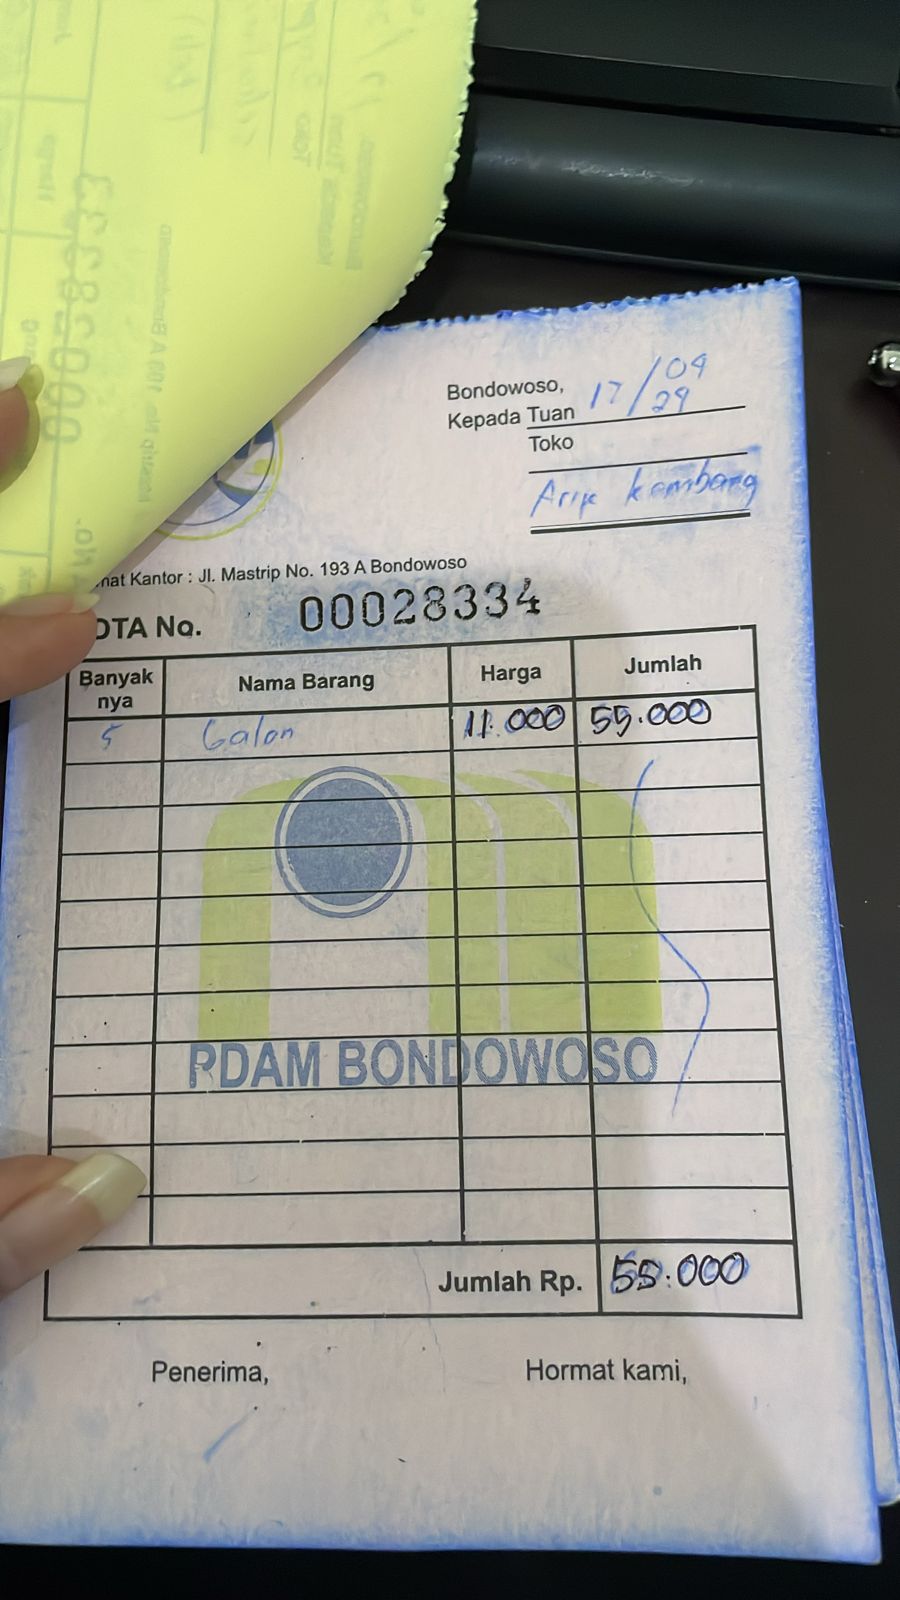 Bondowoso, 17/04
Kepada Tuan 29
Toko
Arif Kembang
mat Kantor : Jl. Mastrip No. 193 A Bondowoso
OTA No. 00028334
Banyak nya Nama Barang Harga Jumlah
5 Galon 11.000 55.000
PDAM BONDOWOSO
Jumlah Rp. 55.000
Penerima, Hormat kami,